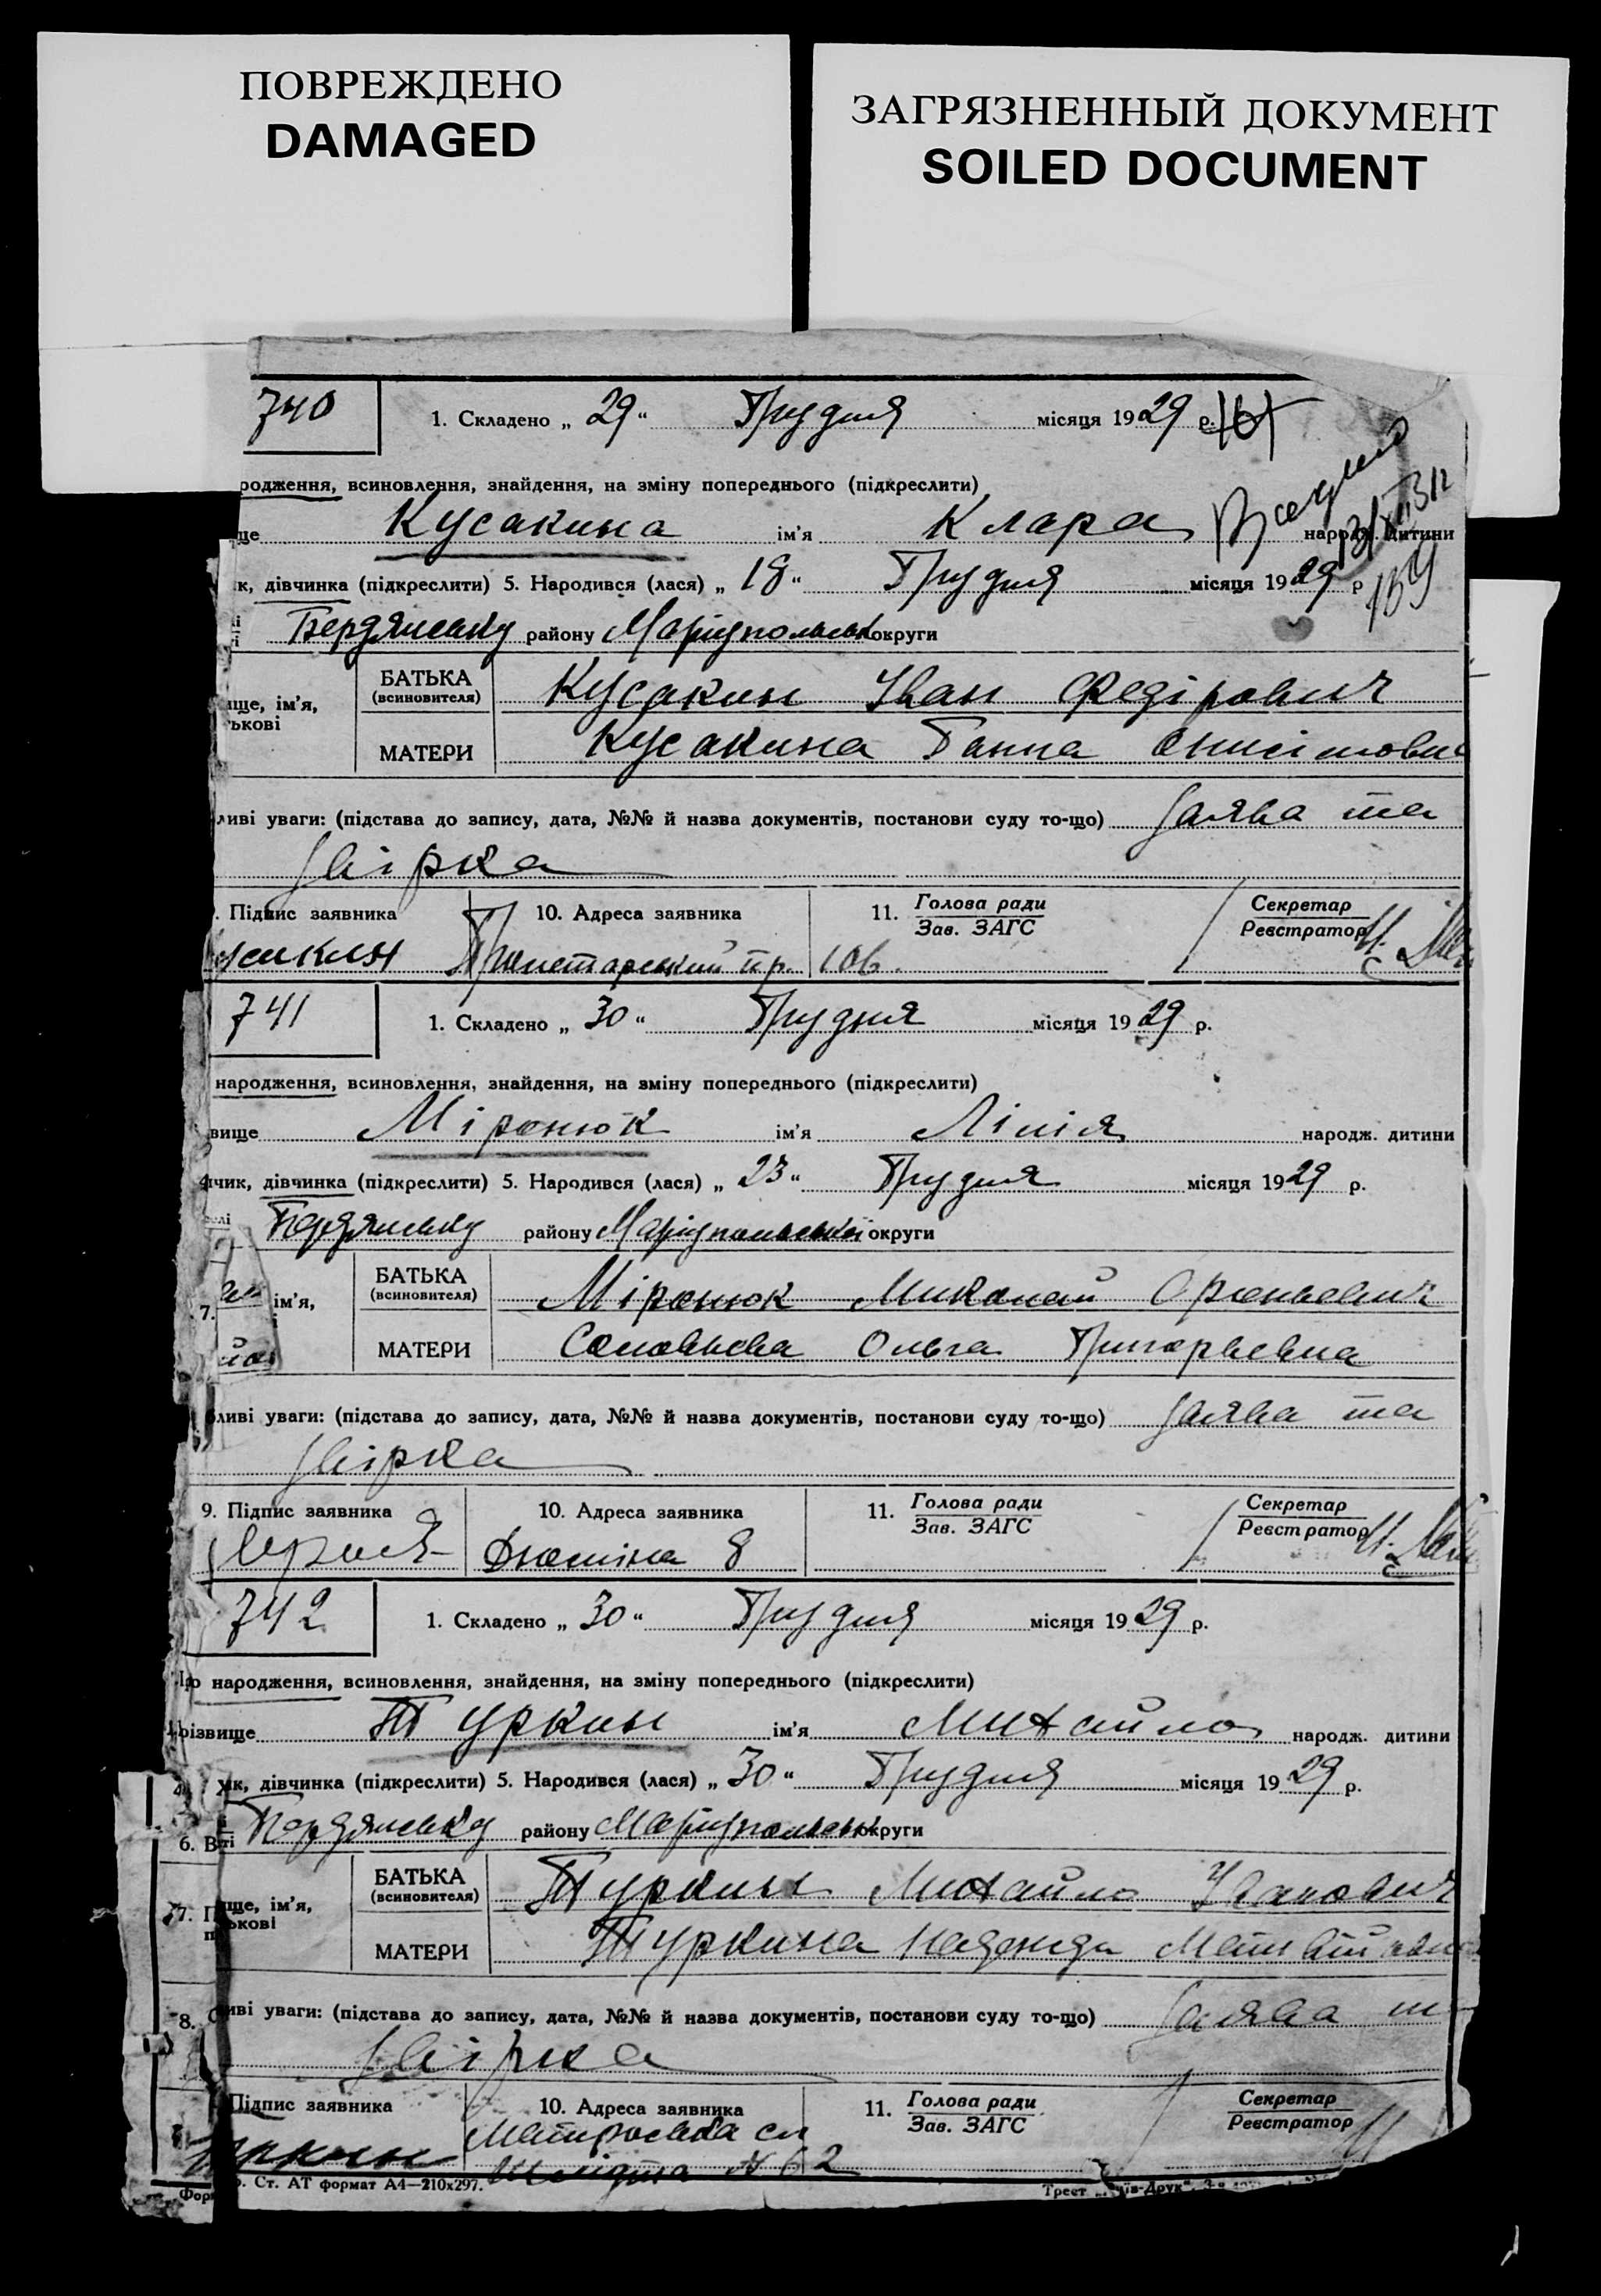 ПОВРЕЖДЕНО
DAMAGED
ЗАГРЯЗНЕННЫЙ ДОКУМЕНТ
SOILED DOCUMENT
740
1. Складено „ 29 “ Грудня місяця 1929 р.
родження, всиновлення, знайдення, на зміну попереднього (підкреслити)
ще Кусакина ім'я Клара народж. дитини
159
ик, дівчинка (підкреслити) 5. Народився (лася) „ 18 “ Грудня місяця 1929 р
Бердянську району Маріупольськ округи
ище, ім'я,
ькові
БАТЬКА
(всиновителя)
Кусакин Іван Федірович
МАТЕРИ
Кусакина Ганна Онисімовн
ливі уваги: (підстава до запису, дата, №№ й назва документів, постанови суду то-що) Заява та
звірка
. Підпис заявника
10. Адреса заявника
11. Голова ради
Зав. ЗАГС
Секретар
Реєстратор
усакин
Пролетарський пр. 106.
741
1. Складено „ 30 “ Грудня місяця 1929 р.
народження, всиновлення, знайдення, на зміну попереднього (підкреслити)
вище Міронюк ім'я Лілія народж. дитини
пчик, дівчинка (підкреслити) 5. Народився (лася) „ 23 “ Грудня місяця 1929 р.
Бердянську району Маріупольської округи
7. ім'я,
БАТЬКА
(всиновителя)
Міронюк Миколай
МАТЕРИ
Соловьева Ольга Григорьевна
ливі уваги: (підстава до запису, дата, №№ й назва документів, постанови суду то-що) Заява та
звірка
9. Підпис заявника
10. Адреса заявника
11. Голова ради
Зав. ЗАГС
Секретар
Реєстратор
8
742
1. Складено „ 30 “ Грудня місяця 1929 р.
народження, всиновлення, знайдення, на зміну попереднього (підкреслити)
різвище Туркин ім'я Михайло народж. дитини
ик, дівчинка (підкреслити) 5. Народився (лася) „ 30 “ Грудня місяця 1929 р.
6. В ті Бердянську району Маріупольськ округи
7. П ще, ім'я,
ькові
БАТЬКА
(всиновителя)
Туркин Михайло Іванович
МАТЕРИ
Туркина Надежда
8. иві уваги: (підстава до запису, дата, №№ й назва документів, постанови суду то-що) Заява т
звірка
Підпис заявника
10. Адреса заявника
11. Голова ради
Зав. ЗАГС
Секретар
Реєстратор
уркин
Матроська сл
Шмідта № 62
Ст. АТ формат А4—210х297.
Трест